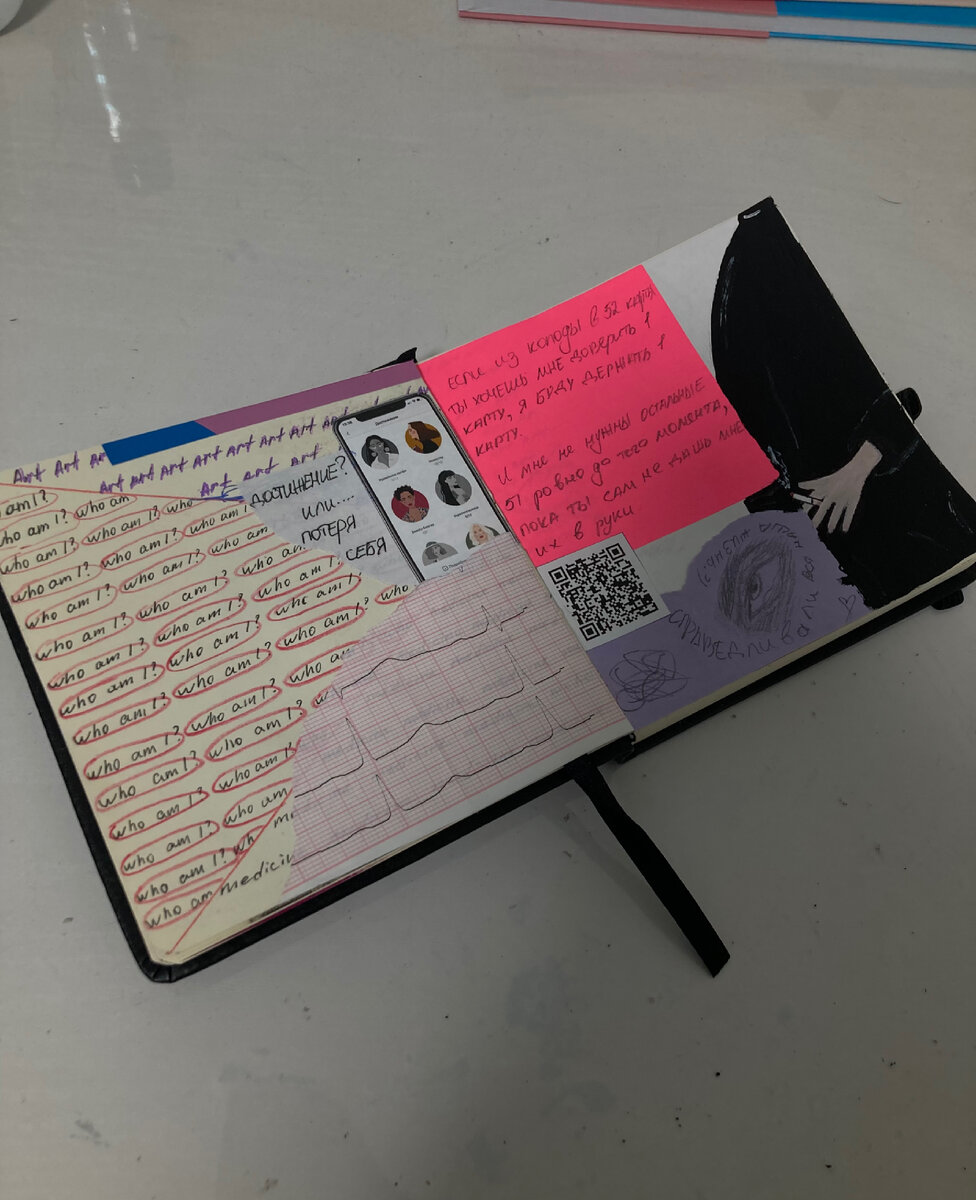 Art Art Ar
Art Art Art Art Art Art Art Art
Art Art Art
am I? who am
who am I? who am I? who
who am I? who am I? who am I?
who am I? who am I? who am
who am I? who am I? who am
who am I? who am I? who am I? who
who am I? who am I? who am I?
who am I? who am I? who am I?
who am I? who am I? who am
who am I? who am I? w
who am I? who am I?
who am I? who am I?
who am I? who am
who am I? wh
who am I?
who am medicin
ДОСТИЖЕНИЕ?
ИЛИ....
ПОТЕРЯ
СЕБЯ
ЕСЛИ ИЗ КОЛОДЫ В 52 КАРТЫ
ТЫ ХОЧЕШЬ МНЕ ДОВЕРИТЬ 1
КАРТУ, Я БУДУ ДЕРЖАТЬ 1
КАРТУ.
И МНЕ НЕ НУЖНЫ ОСТАЛЬНЫЕ
51 РОВНО ДО ТОГО МОМЕНТА,
ПОКА ТЫ САМ НЕ ДАШЬ МНЕ
ИХ В РУКИ